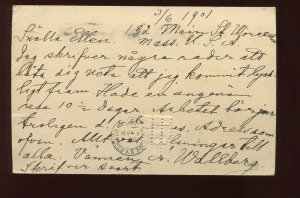 3/6 1901
Snälla Ellen. 182 Main St Worcester
Mass. U. S. A
Jag skrifver några rader att
låta dig veta att jag kommit lyck-
ligt fram Hade en angenäm
resa 10½ dagar. Arbetet börjar
troligen Adress som
ofvan. hälsningar till
alla Vänner. Wallberg.
Skrif snart.